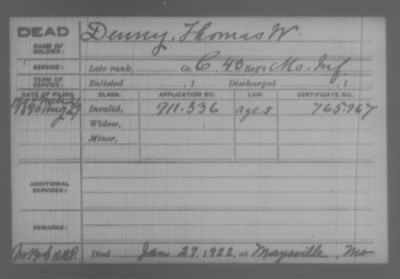 DEAD
NAME OF SOLDIER: Denny, Thomas W.
SERVICE: Late rank, Co. C, 43 Reg't Mo. Inf.
TERM OF SERVICE: Enlisted , 1 Discharged , 1
DATE OF FILING. CLASS. APPLICATION NO. LAW. CERTIFICATE NO.
1890 Aug 27 Invalid, 911.336 765.967
Widow,
Minor,
ADDITIONAL SERVICES:
REMARKS:
Died Jan 27, 1922, at Maysville, Mo